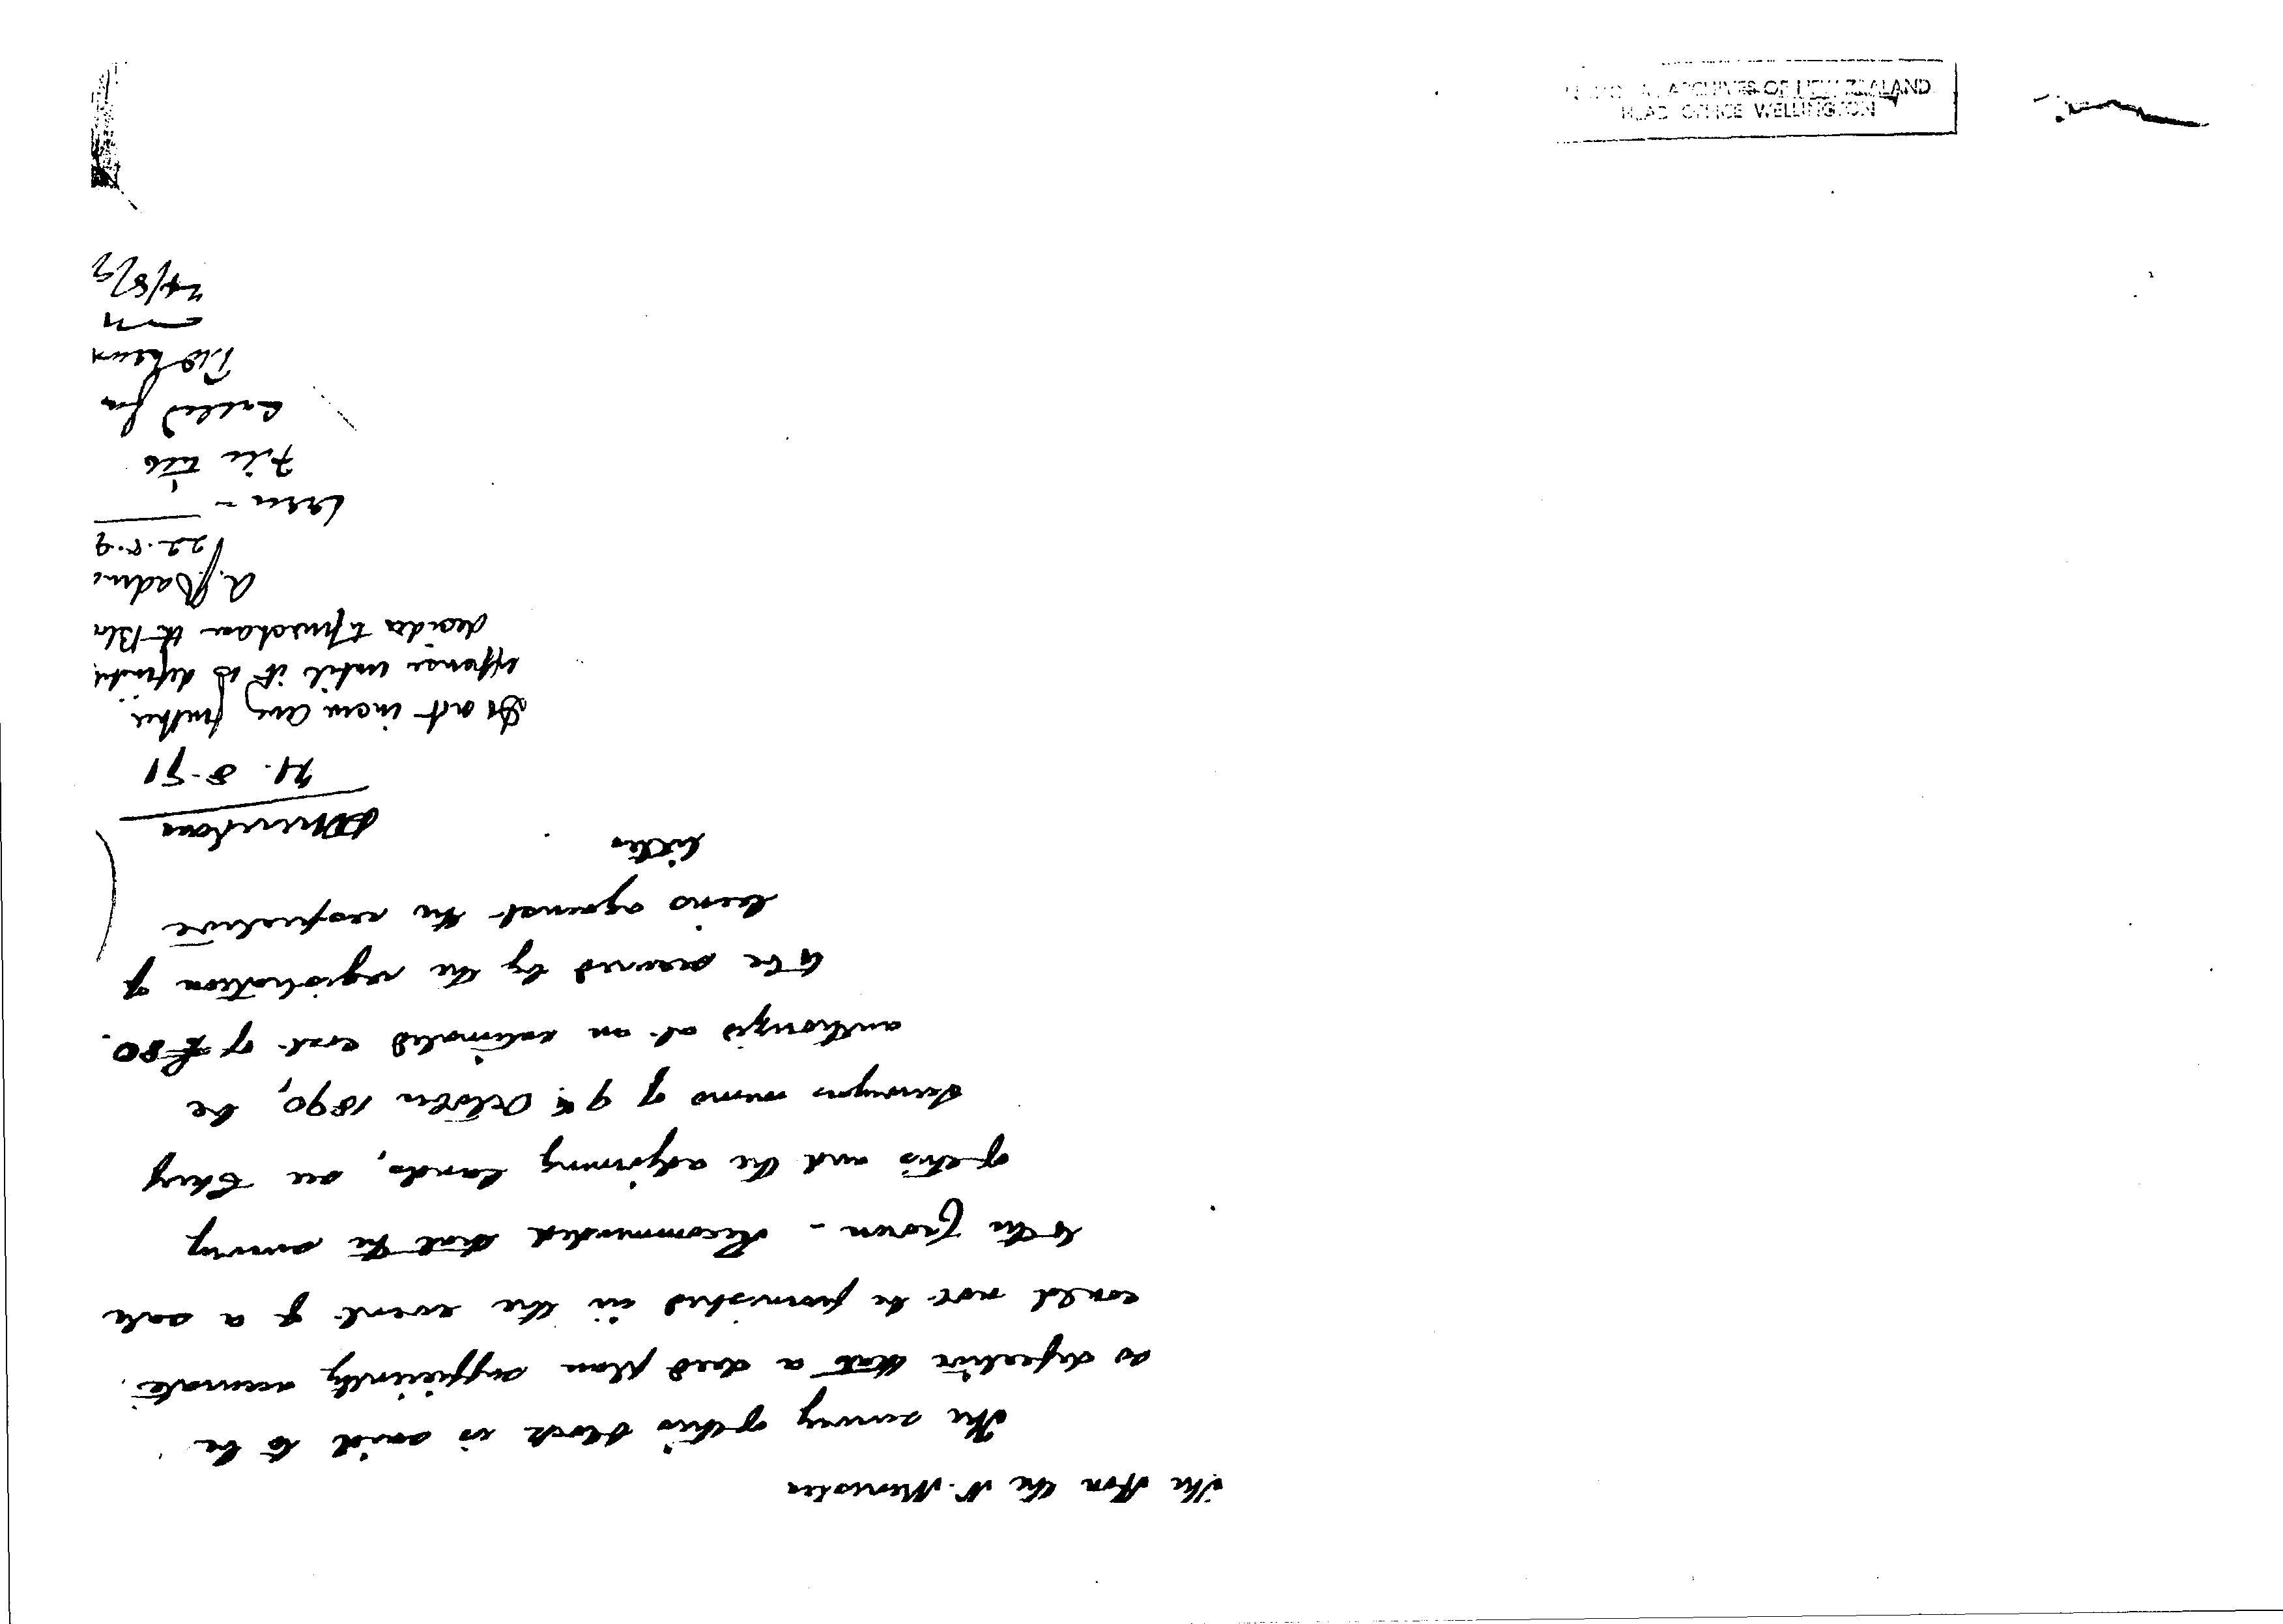 NATIONAL ARCHIVES OF NEW ZEALAND
HEAD OFFICE WELLINGTON
The Hon the N. Minister
The survey of this block is said to be
so defective that a deed plan sufficiently accurate
could not be furnished in the event of a sale
to the Crown - Recommended that the survey
of this and the adjoining lands, as
Surveyors memo of 9th October 1890, be
authorized at an estimated cost of £80.
to be secured by the registration of
liens against the respective
titles
21. 8. 91
Do not incur any further
expense until it is definitely
decided to purchase the Blo
A. J. Cadma
22.8.9
File till
called for